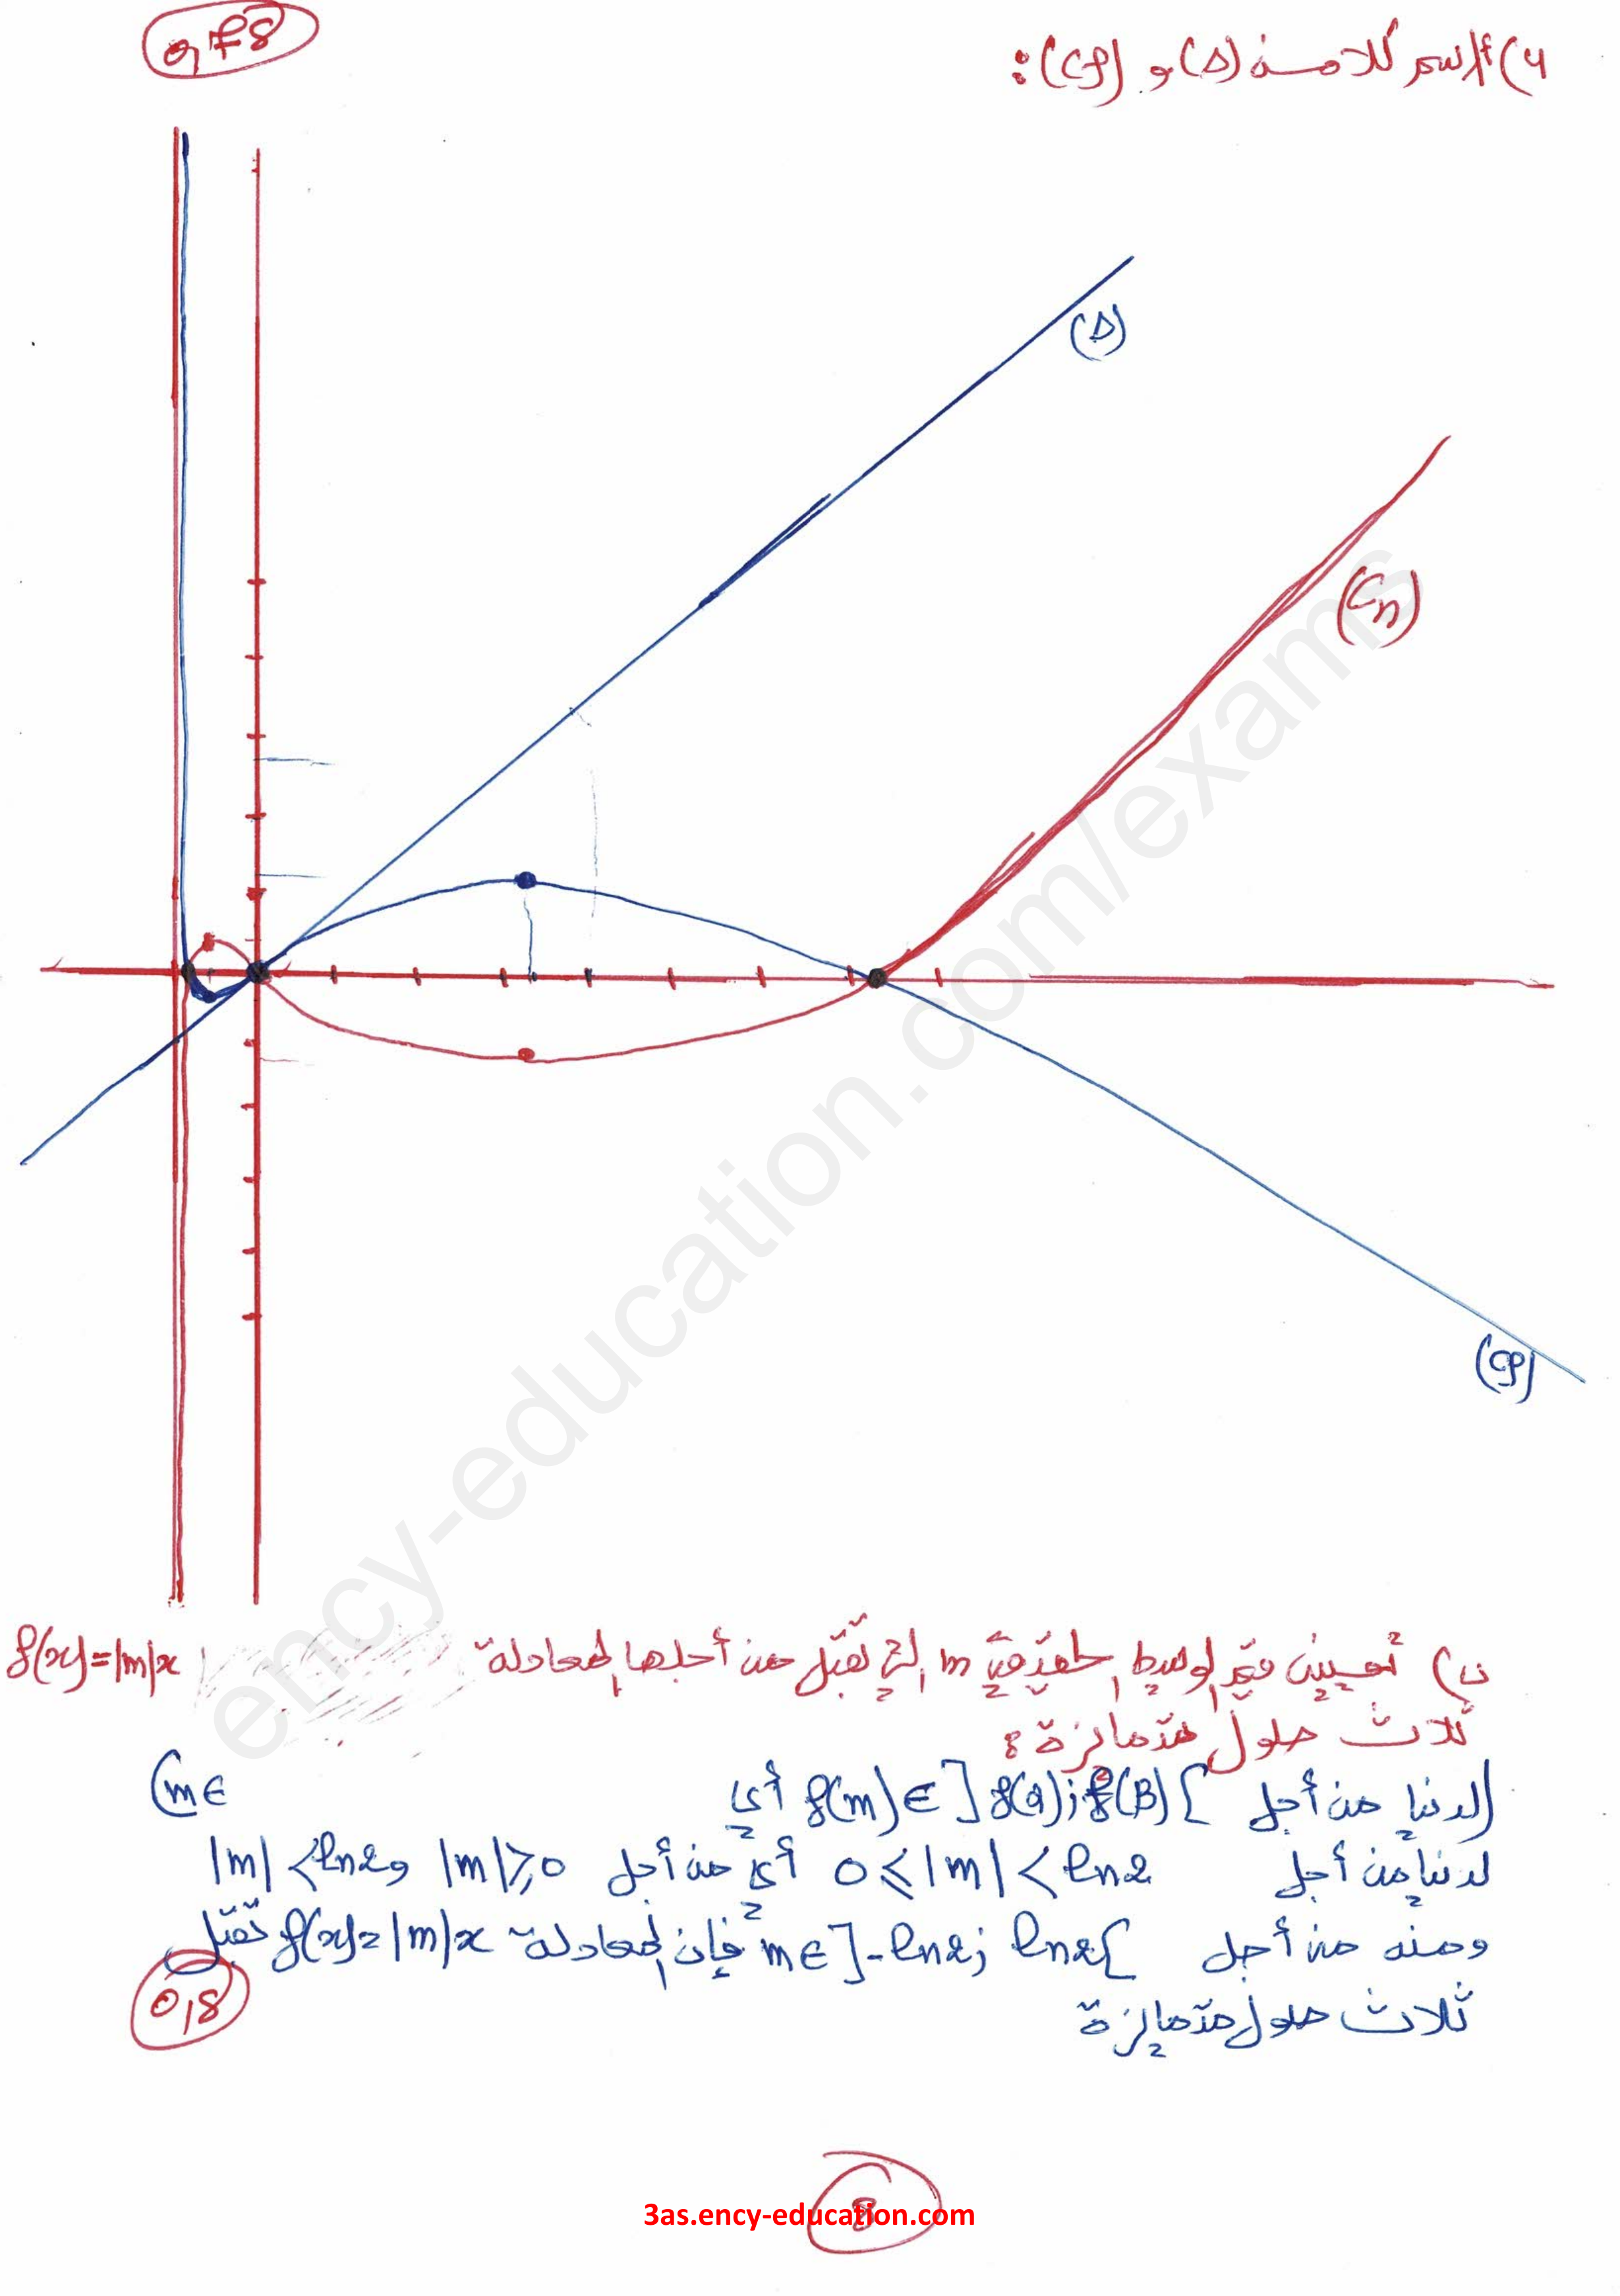 0,75
4) أ) رسم كلا من (Δ) و (Cf):
(Δ)
(Ch)
(Cf)
ب) تعيين قيم الوسيط الحقيقي m التي تقبل من أجلها المعادلة f(x)=|m|x
ثلاث حلول متمايزة:
(لدينا من أجل f(m) ∈ ]f(α);f(β)[ أي m ∈)
لدينا من أجل 0 ≤ |m| < ln2 أي من أجل |m| ≥ 0 و |m| < ln2
ومنه من أجل m ∈ ]-ln2; ln2[ فإن المعادلة f(x)=|m|x تقبل
ثلاث حلول متمايزة
8
3as.ency-education.com
ency-education.com/exams